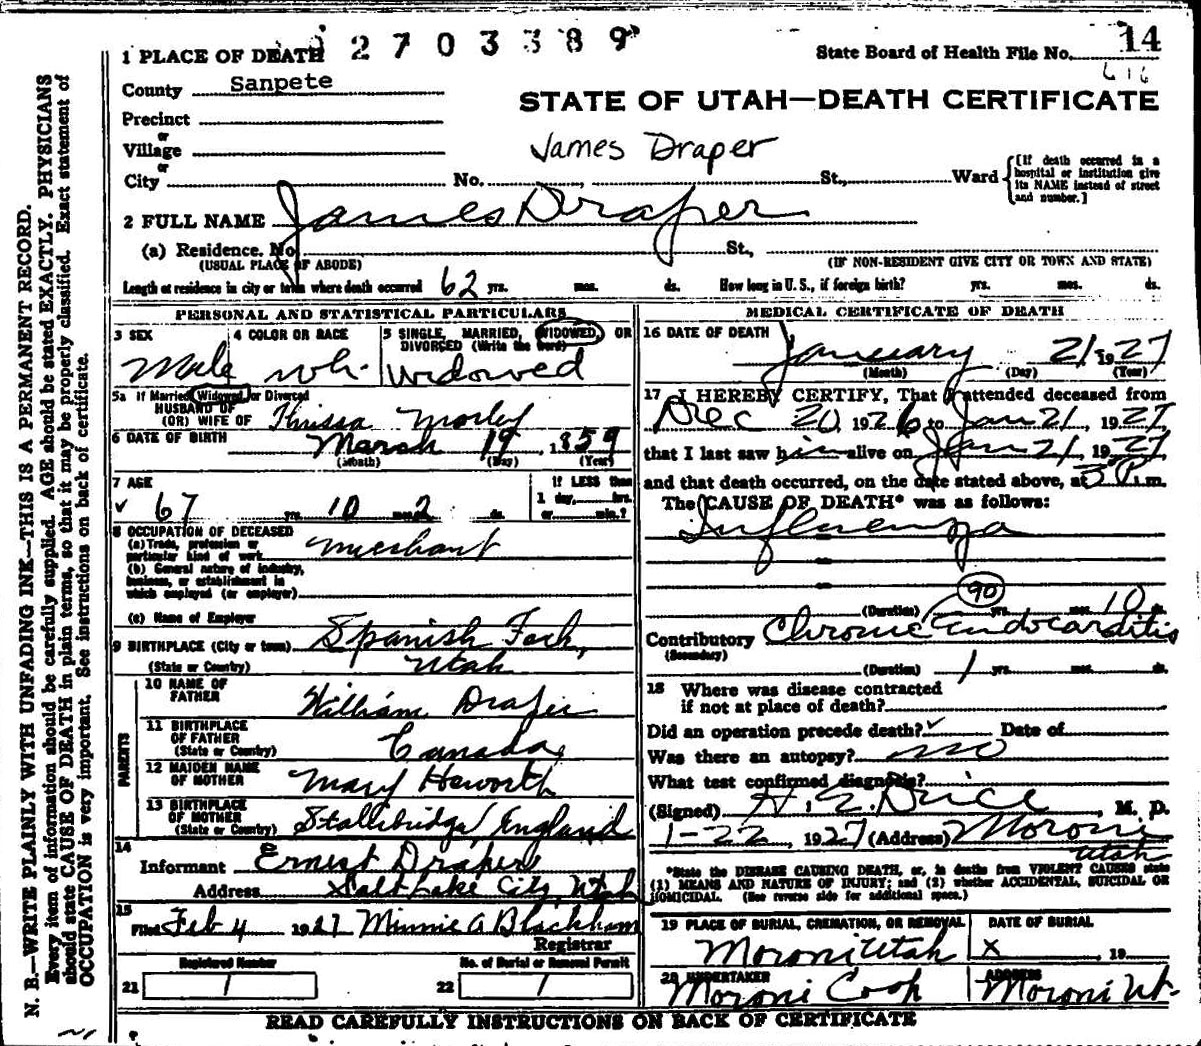 1 PLACE OF DEATH 2703389 State Board of Health File No. 14
616
County Sanpete
STATE OF UTAH—DEATH CERTIFICATE
Precinct
or
Village James Draper
or
City No. St., Ward {[If death occurred in a hospital or institution give its NAME instead of street and number.]
2 FULL NAME James Draper
(a) Residence. No. St.,
(USUAL PLACE OF ABODE) (IF NON-RESIDENT GIVE CITY OR TOWN AND STATE)
Length of residence in city or town where death occurred 62 yrs. mos. ds. How long in U. S., if foreign birth? yrs. mos. ds.
PERSONAL AND STATISTICAL PARTICULARS
3 SEX 4 COLOR OR RACE 5 SINGLE, MARRIED, WIDOWED, OR DIVORCED (Write the word)
Male wh. Widowed
5a If Married, Widowed, or Divorced
HUSBAND OF
(OR) WIFE OF Morley
6 DATE OF BIRTH March 19, 1859
(Month) (Day) (Year)
7 AGE If LESS than
1 day, hrs.
67 yrs. 10 mos. 2 ds. or min.?
8 OCCUPATION OF DECEASED
(a) Trade, profession or
particular kind of work merchant
(b) General nature of industry,
business, or establishment in
which employed (or employer)
(c) Name of Employer
9 BIRTHPLACE (City or town) Spanish Fork,
(State or Country) Utah
PARENTS
10 NAME OF
FATHER William Draper
11 BIRTHPLACE
OF FATHER
(State or Country) Canada
12 MAIDEN NAME
OF MOTHER Mary Haworth
13 BIRTHPLACE
OF MOTHER
(State or Country) England
14
Informant Ernest Draper
Address Salt Lake City, Utah
15
Filed Feb 4 1927 Minnie A Blackham
Registrar
Registered Number No. of Burial or Removal Permit
21 1 22 1
MEDICAL CERTIFICATE OF DEATH
16 DATE OF DEATH
January 21 1927
(Month) (Day) (Year)
17 I HEREBY CERTIFY, That I attended deceased from
Dec 20, 1926 to Jan 21, 1927
that I last saw him alive on Jan 21, 1927
and that death occurred, on the date stated above, at 3 P.m.
The CAUSE OF DEATH* was as follows:
Influenza
90
(Duration) yrs. mos. 10 ds.
Contributory Chronic Endocarditis
(Secondary)
(Duration) 1 yrs. mos. ds.
18 Where was disease contracted
if not at place of death?
Did an operation precede death? Date of
Was there an autopsy? no
What test confirmed diagnosis?
(Signed) M. D.
1-22, 1927 (Address) Moroni
Utah
*State the DISEASE CAUSING DEATH, or, in deaths from VIOLENT CAUSES state
(1) MEANS AND NATURE OF INJURY; and (2) whether ACCIDENTAL, SUICIDAL OR
HOMICIDAL. (See reverse side for additional space.)
19 PLACE OF BURIAL, CREMATION, OR REMOVAL DATE OF BURIAL
Moroni Utah X 19
20 UNDERTAKER ADDRESS
Moroni Coop Moroni Ut.
READ CAREFULLY INSTRUCTIONS ON BACK OF CERTIFICATE
N. B.—WRITE PLAINLY WITH UNFADING INK—THIS IS A PERMANENT RECORD.
Every item of information should be carefully supplied. AGE should be stated EXACTLY. PHYSICIANS
should state CAUSE OF DEATH in plain terms, so that it may be properly classified. Exact statement of
OCCUPATION is very important. See instructions on back of certificate.